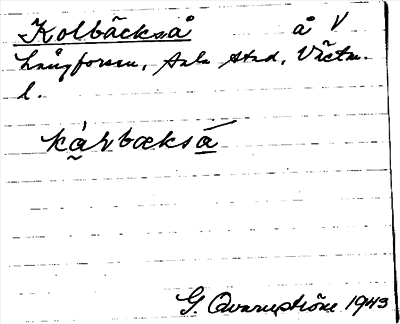 Kolbäckså å V
Långforsen, Sala stad, Västm.
l.
kàrbæksá
G. Qvarnström 1943